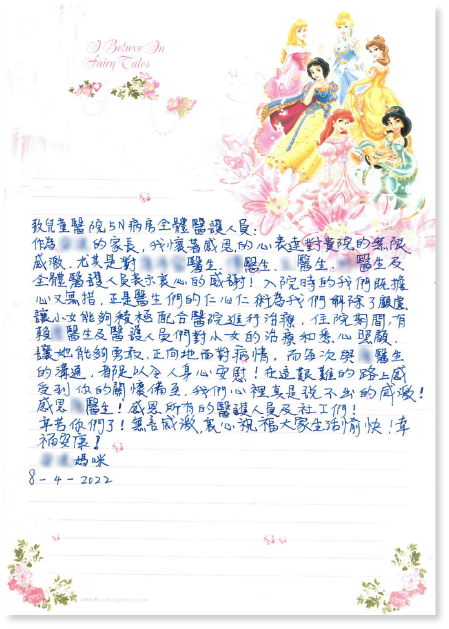 I Believe In
Fairy Tales
致兒童醫院5N病房全體醫護人員:
作為 的家長,我懷着感恩的心表達對貴院的無限
感激,尤其是對 醫生、 醫生、 醫生、 醫生及
全體醫護人員表示衷心的感謝!入院時的我們既擔
心又無措,正是醫生們的仁心仁術為我們解除了顧慮
讓小女能夠積極配合醫院進行治療,住院期間,有
賴 醫生及醫護人員們對小女的治療和悉心照顧,
讓她能夠勇敢、正向地面對病情。而每次與 醫生
的溝通,都足以令人身心安慰!在這艱難的路上感
受到你的關懷備至,我們心裡真是說不出的感激!
感恩 醫生!感恩所有的醫護人員及社工們!
辛苦你們了!無言感激,衷心祝福大家生活愉快!幸
福安康!
媽咪
8-4-2022